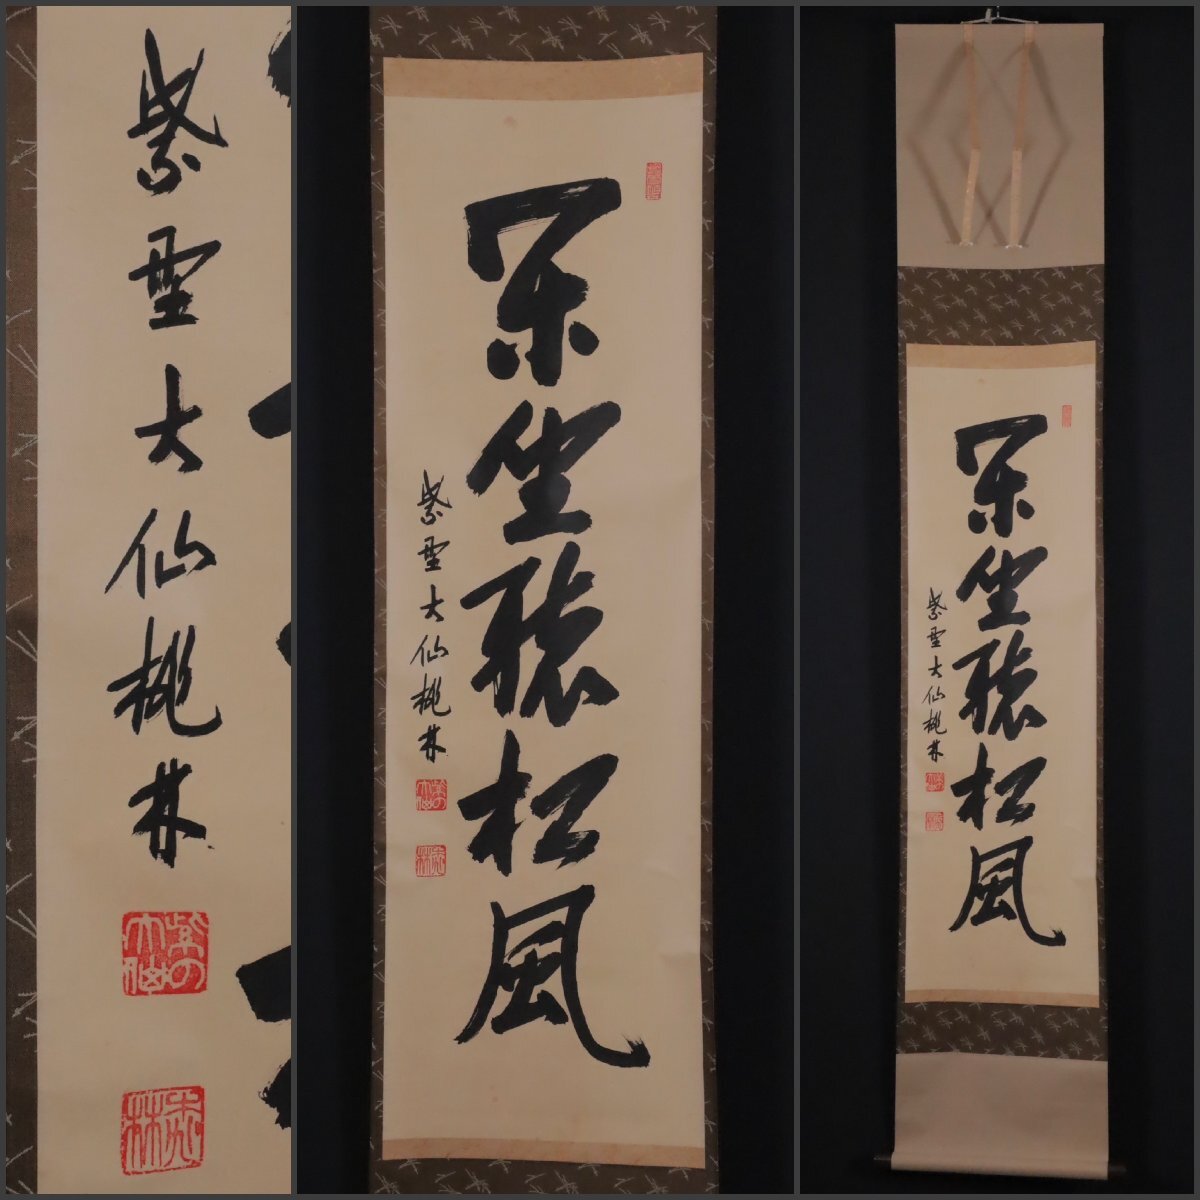 紫野大仙桃林
閑坐聴松風
紫野大仙桃林
閑坐聴松風
紫野大仙桃林